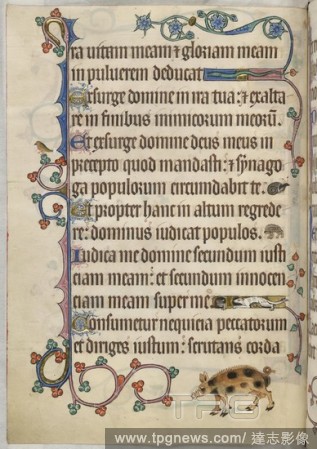 ra uitam meam ⁊ gloriam meam
in puluerem deducat
Exsurge domine in ira tua: ⁊ exalta
re in finibus inimicorum meorū.
Et exsurge domine deus meus in
precepto quod mandasti: ⁊ synago
ga populorum circumdabit te.
Et propter hanc in altum regrede
re: dominus iudicat populos.
Iudica me domine secundum iusti
ciam meam: et secundum innocen
ciam meam super me
Consumetur nequicia peccatorum
et diriges iustum: scrutans corda
TPG
www.tpgnews.com/ 達志影像